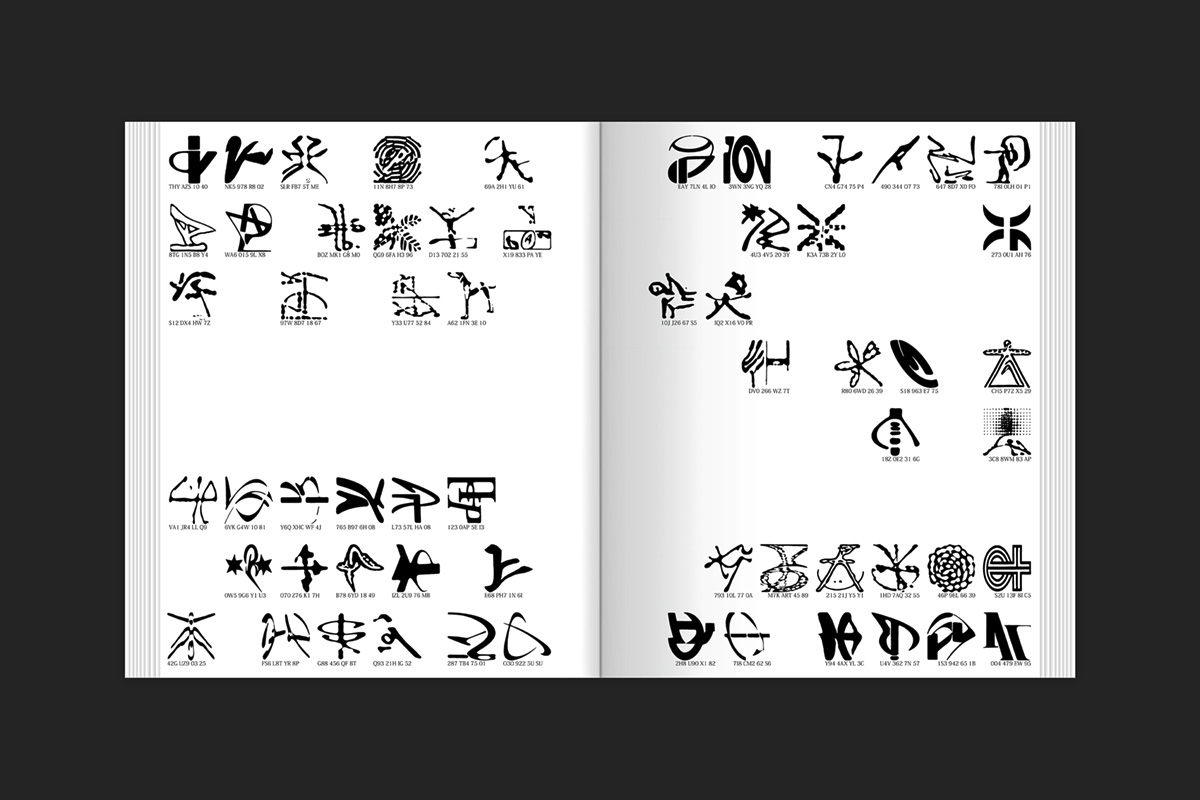 THY AZS 10 40 NK5 978 R8 02 SLR FB7 5T ME 11N 8H7 8P 73 69A 2H1 YU 61
8TG 1N5 B8 Y4 WA6 015 9L X8 BOZ MK1 C8 M0 QG9 6FA H3 96 D13 702 21 55 X19 833 PA YE
S12 DX4 HW 7Z 97W 8D7 18 67 Y33 U77 52 84 A62 1FN 3E 10
VA1 JR4 LL Q9 6VK G4W 10 81 Y6Q XHC WF 4J 765 B97 6H 0B L73 57L HA 08 123 0AP 5E I3
0W5 9G6 Y1 U3 070 Z76 K1 7H B78 6YD 18 49 IZL 2U9 76 MB E68 PH7 1N 6I
42G UZ9 03 25 FS6 L8T YR 8P G88 456 QF BT Q93 21H IG 52 287 TB4 75 01 O30 922 5U SU
EAY 7LN 4L IO 3WN 3NG YQ 28 CN4 G74 75 P4 490 344 O7 73 647 8D7 X0 FO 78I 0LH 01 P1
4U3 4V5 20 3Y K3A 73B 2Y L0 273 0U1 AH 76
10J J26 67 S5 IQ2 X16 V0 PR
DV0 266 WZ 7T R80 6WD 26 39 S18 963 E7 75 CH5 P72 X5 29
18Z 0E2 31 6G 3C8 8WM 83 AP
793 10L 77 0A M7K ART 45 89 215 21J Y5 Y1 1HD 7AQ 32 55 46P 9RL 66 39 52U 13F 8I C5
2H8 U90 X1 82 7I8 CM2 62 S6 Y94 4AX YL 3C U4V 362 7N 57 1S3 942 65 18 004 479 FW 95